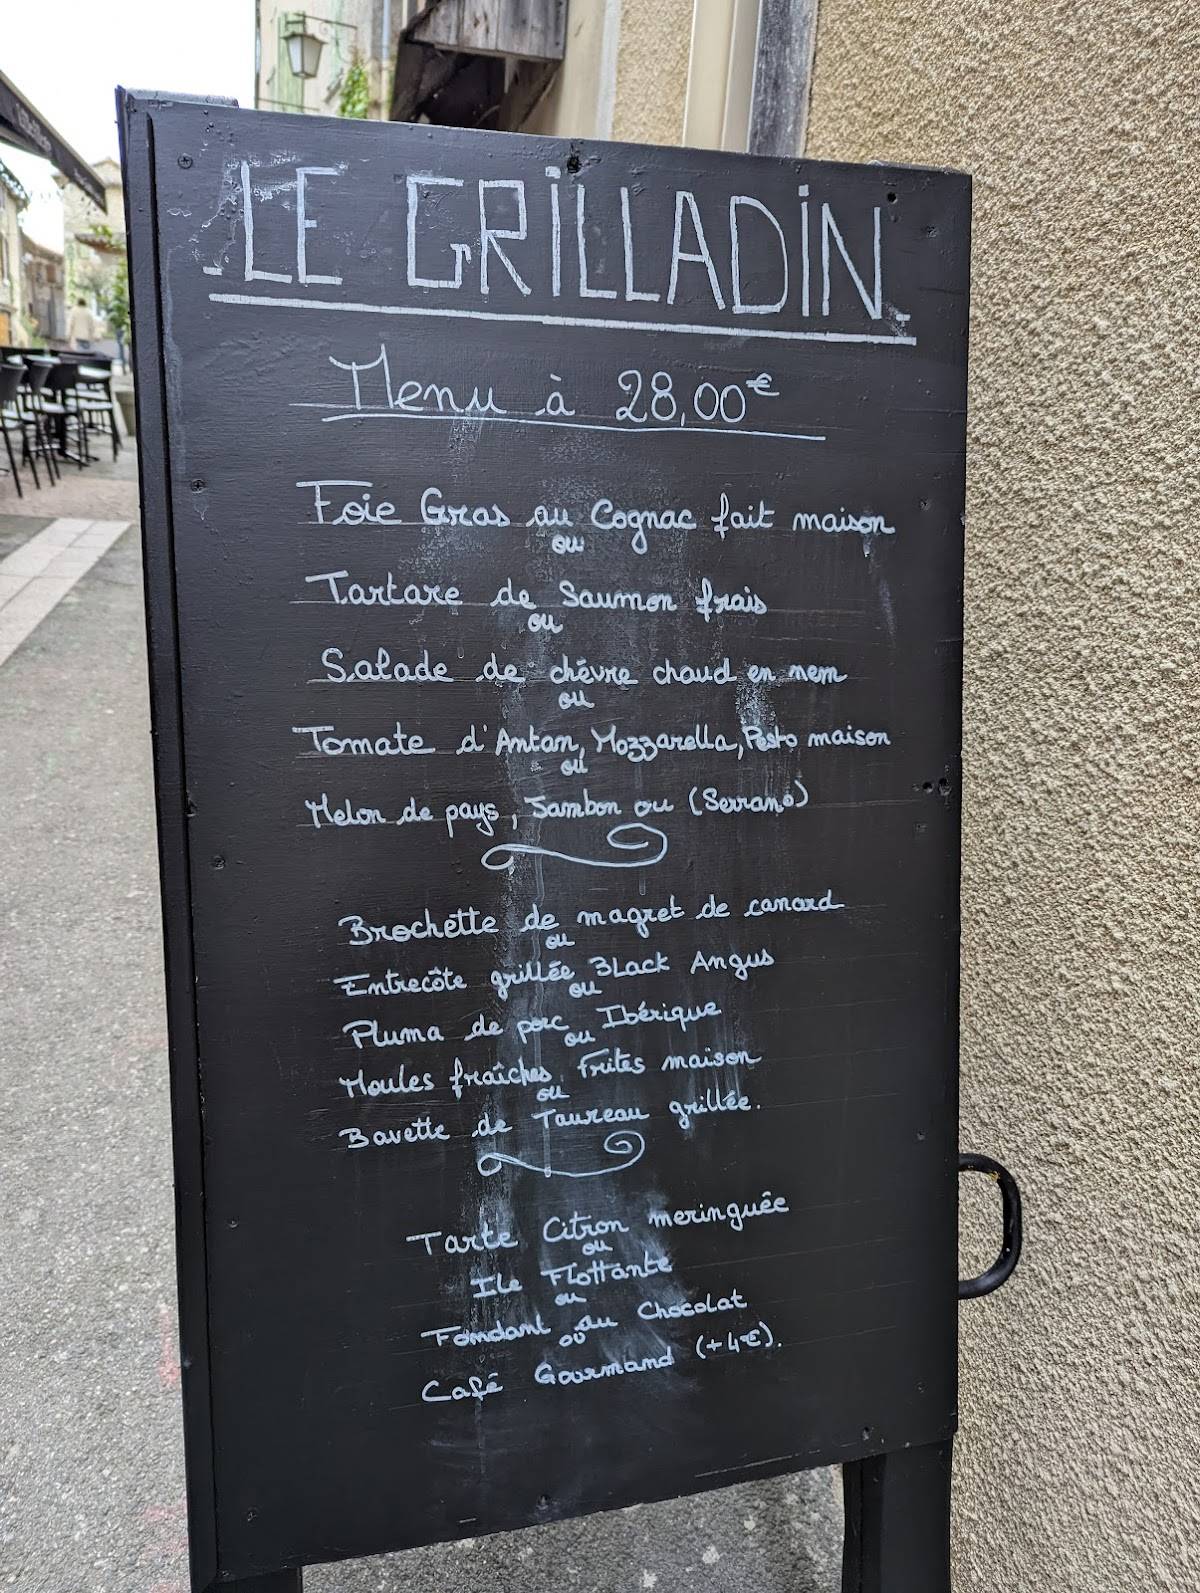 .LE GRILLADIN.
Menu à 28,00€
Foie Gras au Cognac fait maison
ou
Tartare de Saumon frais
ou
Salade de chévre chaud en nem
ou
Tomate d'Antan, Mozzarella, Pesto maison
ou
Melon de pays, Jambon ou (Serrano)
Brochette de magret de canard
ou
Entrecôte grillée Black Angus
ou
Pluma de porc Ibérique
ou
Moules fraîches Frites maison
ou
Bavette de Taureau grillée.
Tarte Citron meringuée
ou
Ile Flottante
ou
Fondant au Chocolat
ou
Café Gourmand (+4€).